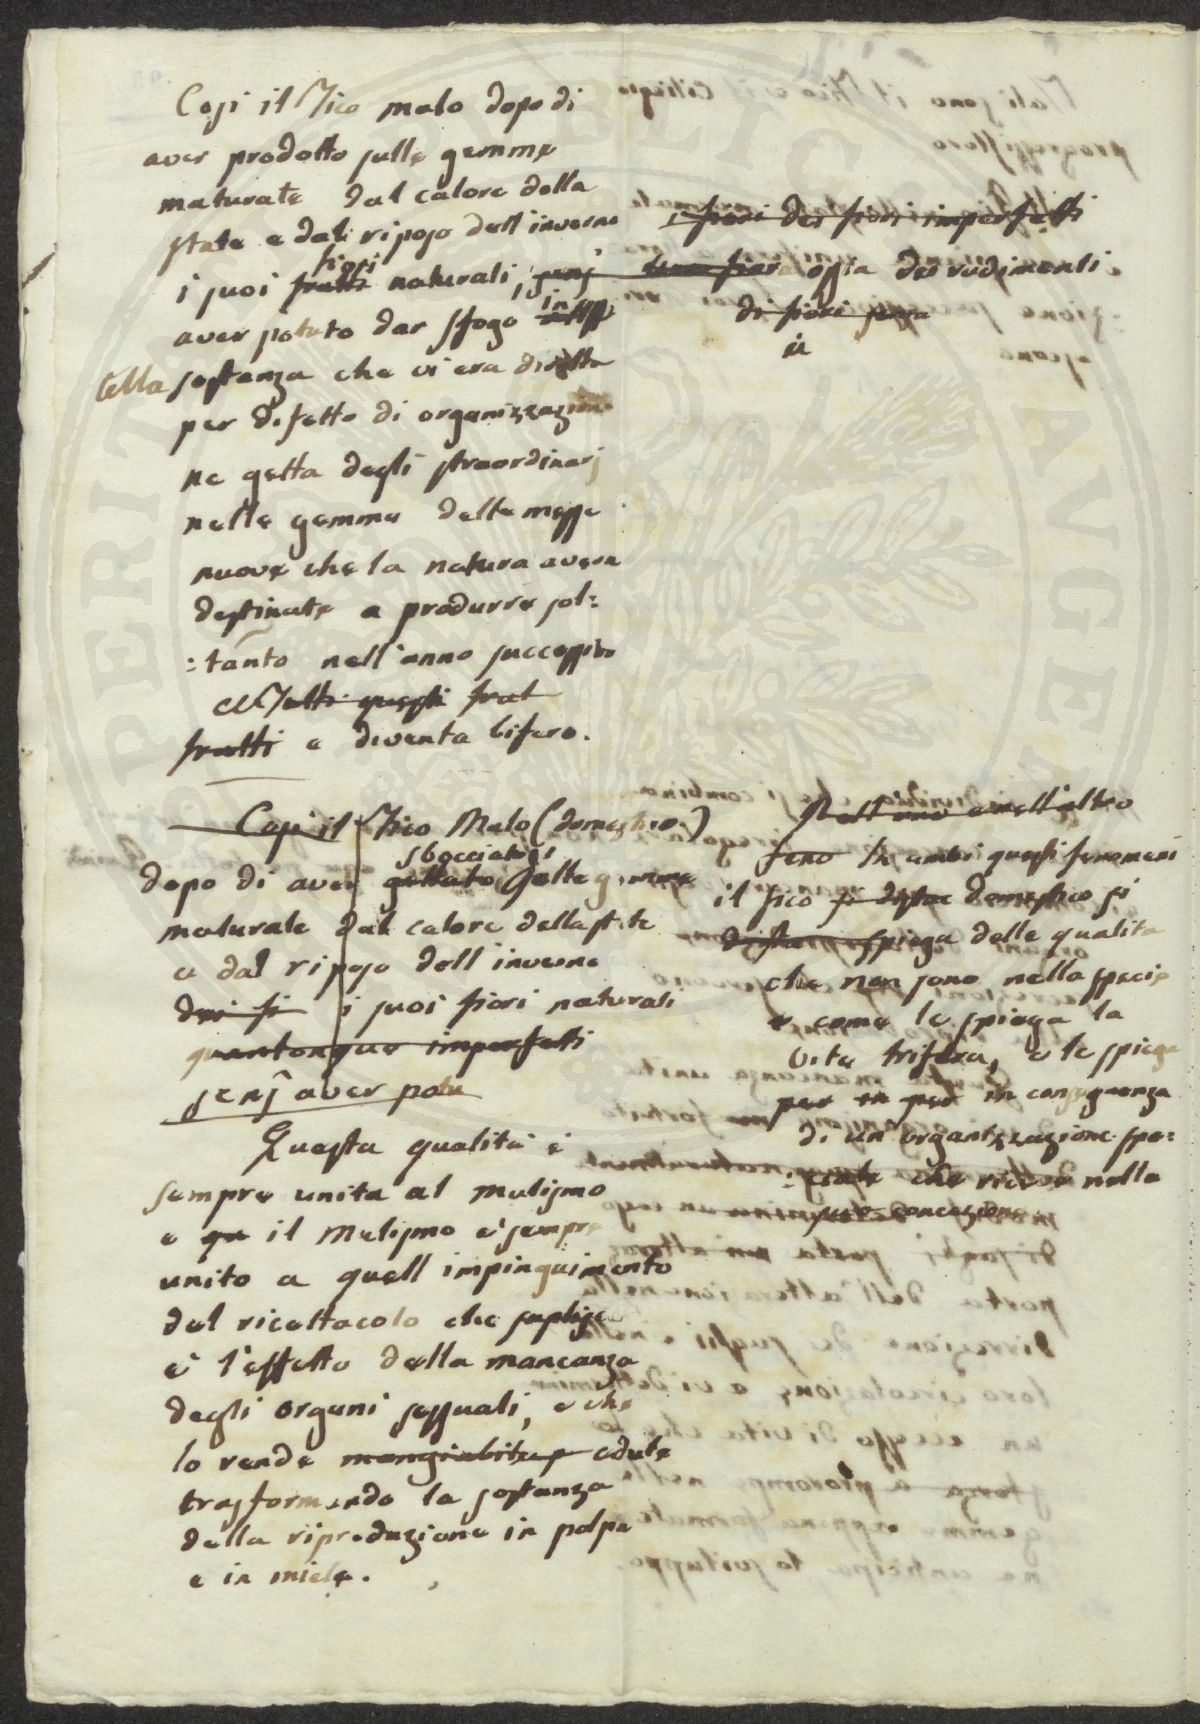 Così il Fico malo dopo di
aver prodotto sulle gemme
maturate dal calore della
state e dal riposo dell'inverno
fiori
i suoi frutti naturali, senz'
aver potuto dar sfogo in
tella sostanza che vi era diretta
per difetto di organizzazione
ne getta degli straordinarj
nelle gemme delle messe
nuove che la natura aveva
destinate a produrre sol:
:tanto nell'anno successivo
Tutti questi frut
frutti e diventa bifero.
fiori dei fiori imperfetti
ossia dei rudimenti
di fiori senza
Così il Fico Malo (domestico)
sbocciato
dopo di aver gettato sulle gemme
maturate dal calore della state
e dal riposo dell'inverno
dei fi i suoi fiori naturali
quantonque imperfetti
senz'aver potu
Questa qualità è
sempre unita al mulismo
e qu il Mulismo è sempre
unito a quell impinguimento
del ricettacolo che
è l'effetto della mancanza
degli organi sessuali, e che
lo rende mangiabile e edule
trasformando la sostanza
della riproduzione in polpa
e in miele.
Nell'uno e nell'altro
feno In ambi questi fenomeni
il fico si distin domestico si
spiega delle qualità
che non sono nella specie
e come le spiega la
vite trifera, e le spiega
per in per in conseguenza
di un organizzazione spe:
:ciale che riceve nella
sua concezione